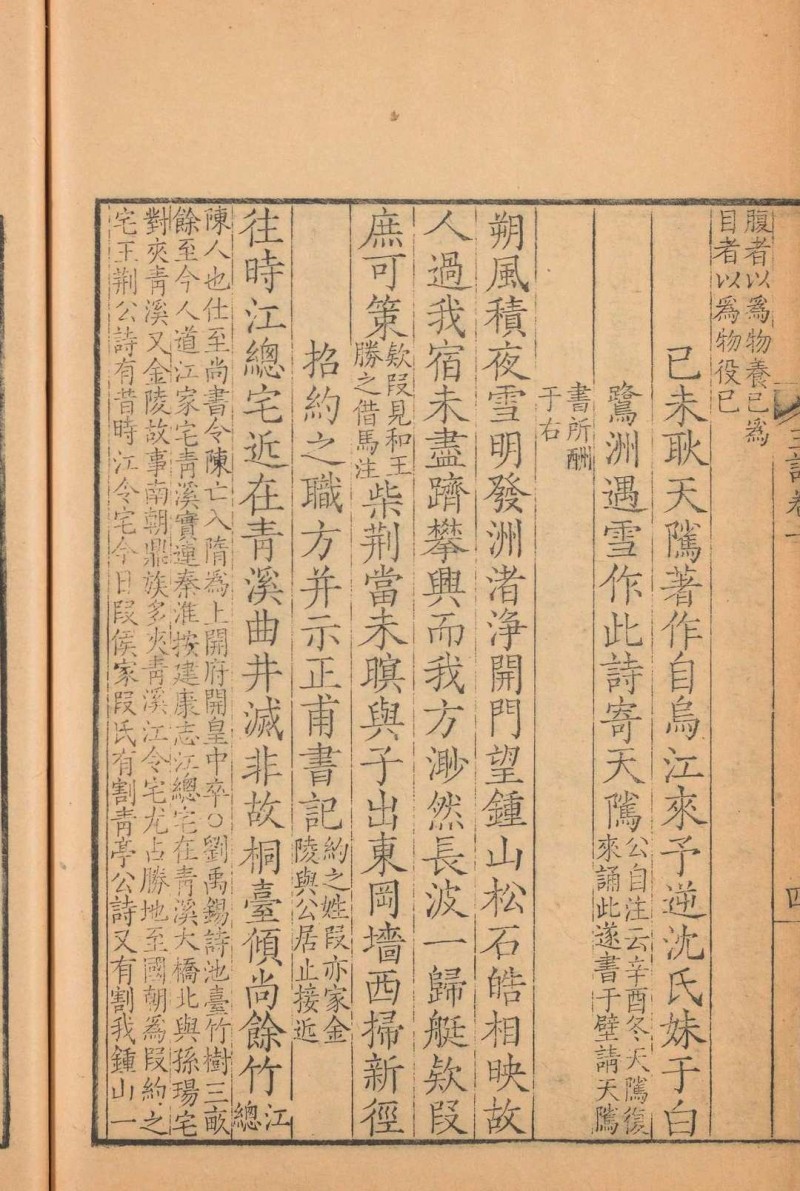 腹者以爲物養己爲
目者以爲物役已
己未耿天隲著作自烏江來予逆沈氏妹于白
鷺洲遇雪作此詩寄天隲
公自注云辛酉冬天隲復
來誦此遂書于壁請天隲
書所酬
于右
朔風積夜雪明發洲渚浄開門望鍾山松石皓相映故
人過我宿未盡躋攀興而我方渺然長波一歸艇欵段
庶可策
欵段見和王
勝之借馬注
柴荆當未瞑與子出東岡墻西掃新徑
招約之職方并示正甫書記
約之姓段亦家金
陵與公居止接近
往時江總宅近在靑溪曲井滅非故桐臺傾尚餘竹
江
總
陳人也仕至尚書令陳亡入隋爲上開府開皇中卒○劉禹錫詩池臺竹樹三畝
餘至今人道江家宅靑溪實連秦淮按建康志江總宅在靑溪大橋北與孫瑒宅
對夾靑溪又金陵故事南朝鼎族多夾靑溪江令宅尤占勝地至國朝爲段約之
宅王荆公詩有昔時江令宅今日段侯家段氏有割靑亭公詩又有割我鍾山一
四